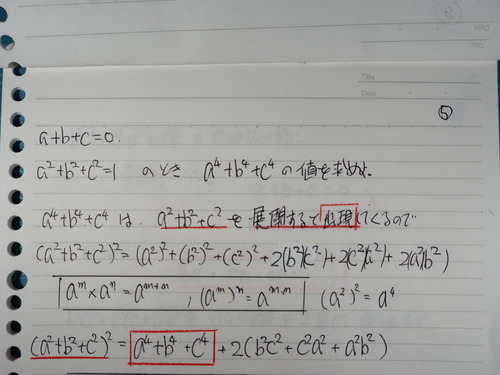 Title
Date
⑤
a+b+c=0.
a²+b²+c²=1 のとき a⁴+b⁴+c⁴ の値を求めよ.
a⁴+b⁴+c⁴ は、a²+b²+c² を 展開すると出現してくるので
(a²+b²+c²)²=(a²)²+(b²)²+(c²)²+2(b²)(c²)+2(c²)(a²)+2(a²)(b²)
aᵐ×aⁿ=aᵐ⁺ⁿ , (aᵐ)ⁿ=aᵐ·ⁿ (a²)²=a⁴
(a²+b²+c²)²=a⁴+b⁴+c⁴+2(b²c²+c²a²+a²b²)